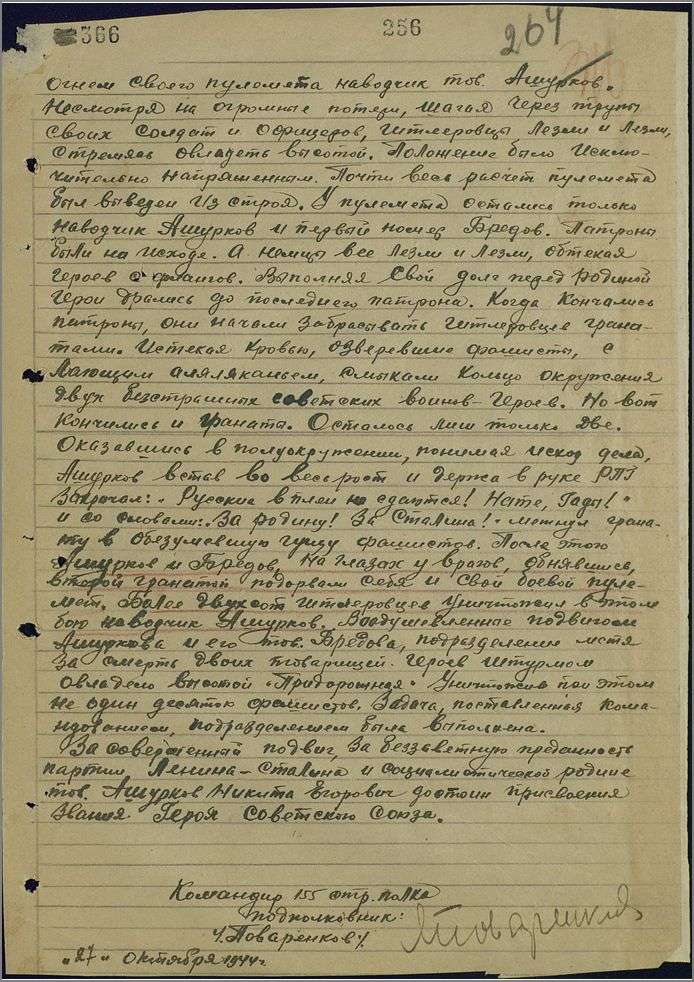 366
256
264
огнем своего пулемета наводчик тов. Ашурков.
Несмотря на огромные потери, шагая через трупы
своих солдат и офицеров, гитлеровцы лезли и лезли,
стремясь овладеть высотой. Положение было исклю-
чительно напряженным. Почти весь расчет пулемета
был выведен из строя. У пулемета остались только
наводчик Ашурков и первый номер Бредов. Патроны
были на исходе. А немцы все лезли и лезли, обтекая
героев с флангов. Выполняя свой долг перед родиной
герои дрались до последнего патрона. Когда кончались
патроны, они начали забрасывать гитлеровцев грана-
тами. Истекая кровью, озверевшие фашисты, с
лающим аляляканьем, смыкали кольцо окружения
двух безстрашных советских воинов-героев. Но вот
кончились и гранаты. Осталось лиш только две.
Оказавшись в полуокружении, понимая исход дела,
Ашурков встав во весь рост и держа в руке РПГ
закричал: "Русские в плен не сдаются! Нате, гады!"
и со словами: "За родину! За Сталина!" метнул грана-
ту в обезумевшую гущу фашистов. После этого
Ашурков и Бредов, на глазах у врагов, обнявшись,
второй гранатой подорвали себя и свой боевой пуле-
мет. Более двухсот гитлеровцев уничтожил в этом
бою наводчик Ашурков. Воодушевленные подвигом
Ашуркова и его тов. Бредова, подразделения мстя
за смерть двоих товарищей-героев штурмом
овладело высотой "Придорожная" уничтожив при этом
не один десяток фашистов. Задача, поставленная кома-
ндованием, подразделением была выполнена.
За совершенный подвиг, за беззаветную преданность
партии Ленина-Сталина и социалистической родине
тов. Ашурков Никита Егорович достоин присвоения
звания Героя Советского Союза.
Командир 155 стр. полка
подполковник:
/Поваренков/
"27" октября 1944г